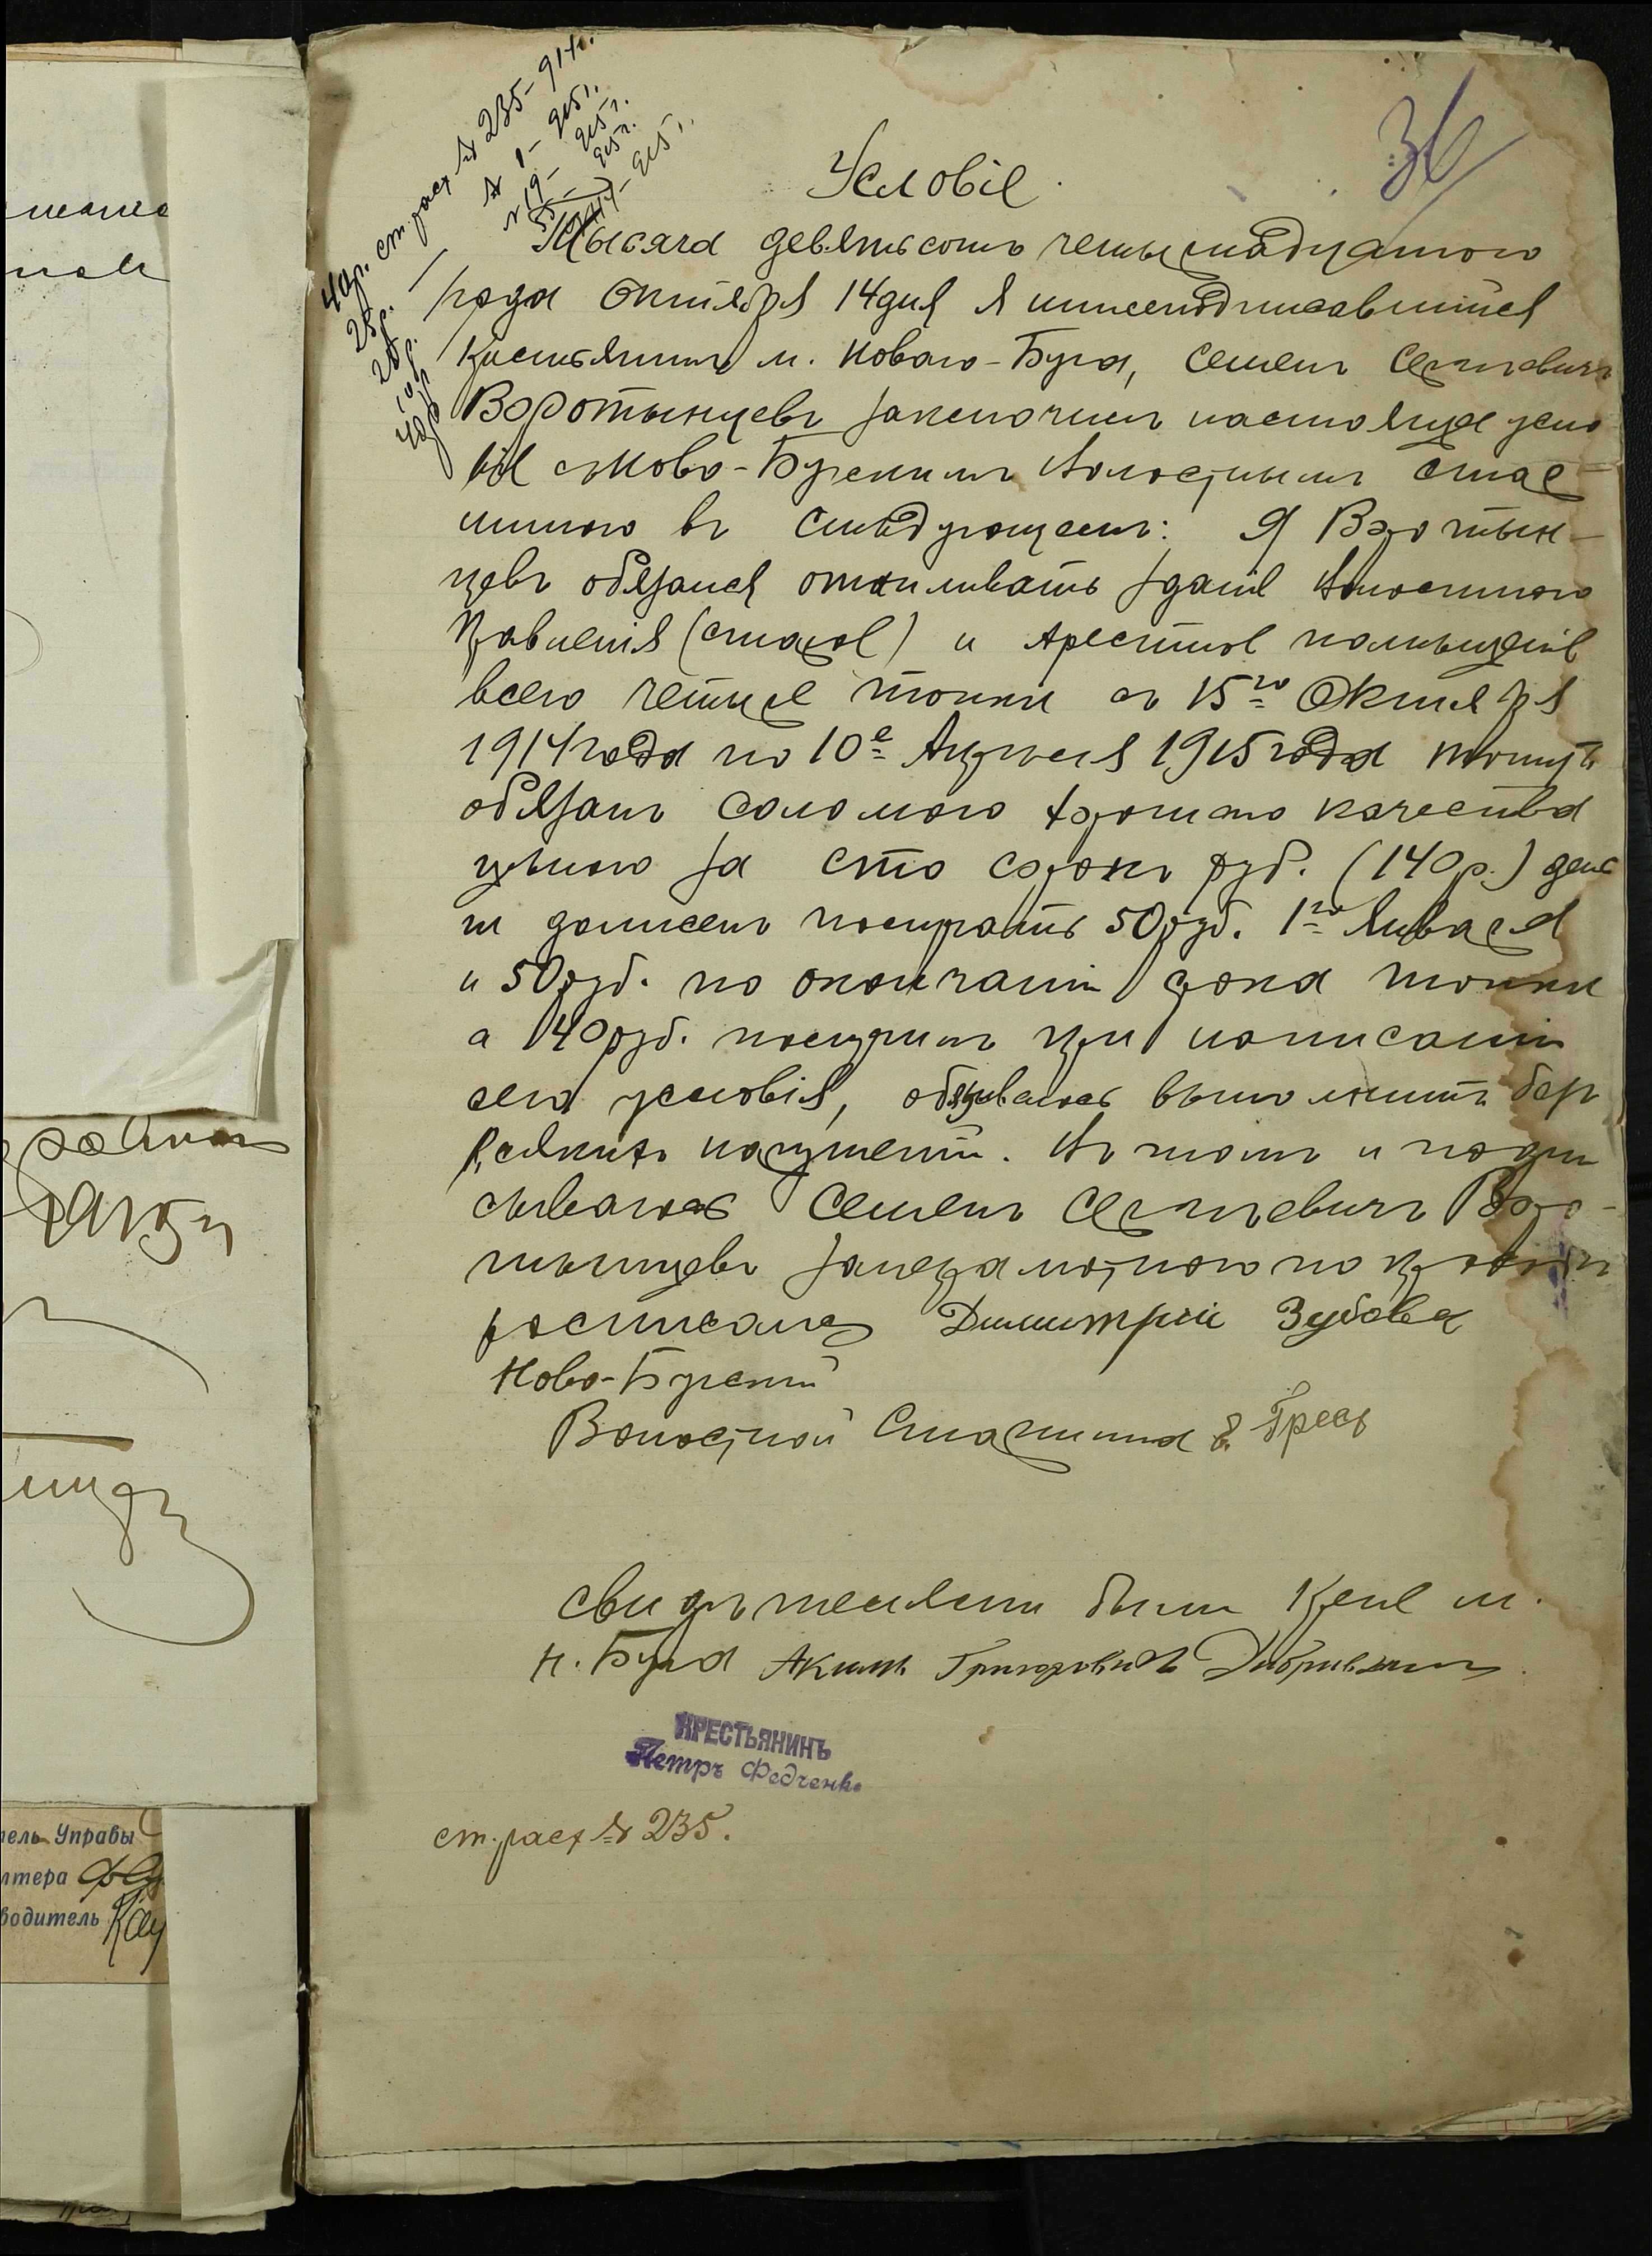 36
40р. ст. расх № 235 - 914г.
25р. — № 1 - 915г.
20р. № 19 - 915г.
10р. 55 - 915г.
45р. 915г.
Условіе.
Тысяча девятьсотъ четырнадцатого
года Октября 14 дня я нижеподписавшійся
Крестьянинъ м. Новаго-Буга, Семенъ Сергѣевичъ
Воротынцевъ заключилъ настоящее усло
віе съ Ново-Бугскимъ Волостнымъ Стар-
шиною въ слѣдующемъ: Я Воротын-
цевъ обязанся отапливать зданіе Волостного
Правленія (старое) и Арестное помѣщеніе
всего четыре топки съ 15го Октября
1914 года по 10е Апрѣля 1915 года топить
обязанъ соломою хорошаго качества
цѣною за сто сорокъ руб. (140р.) день
ги долженъ получать 50 руб. 1го Января
и 50 руб. по окончаніи срока топки
а 40 руб. получилъ при написаніи
сего условія, обязываюсь выполнить без
всякихъ нарушеній. Въ томъ и подпи
сываюсь Семенъ Сергѣевичъ Воро-
тынцевъ занеграмотного по просьбѣ
росписался Димитрій Зубовъ
Ново-Бугскій
Волостной Старшина Гресь
Свидѣтелями были Кр-не м.
Н. Буга Акимъ Григоровичъ
КРЕСТЬЯНИНЪ
Петръ Федченко
ст. расх № 235.
тель Управы
лтера
водитель